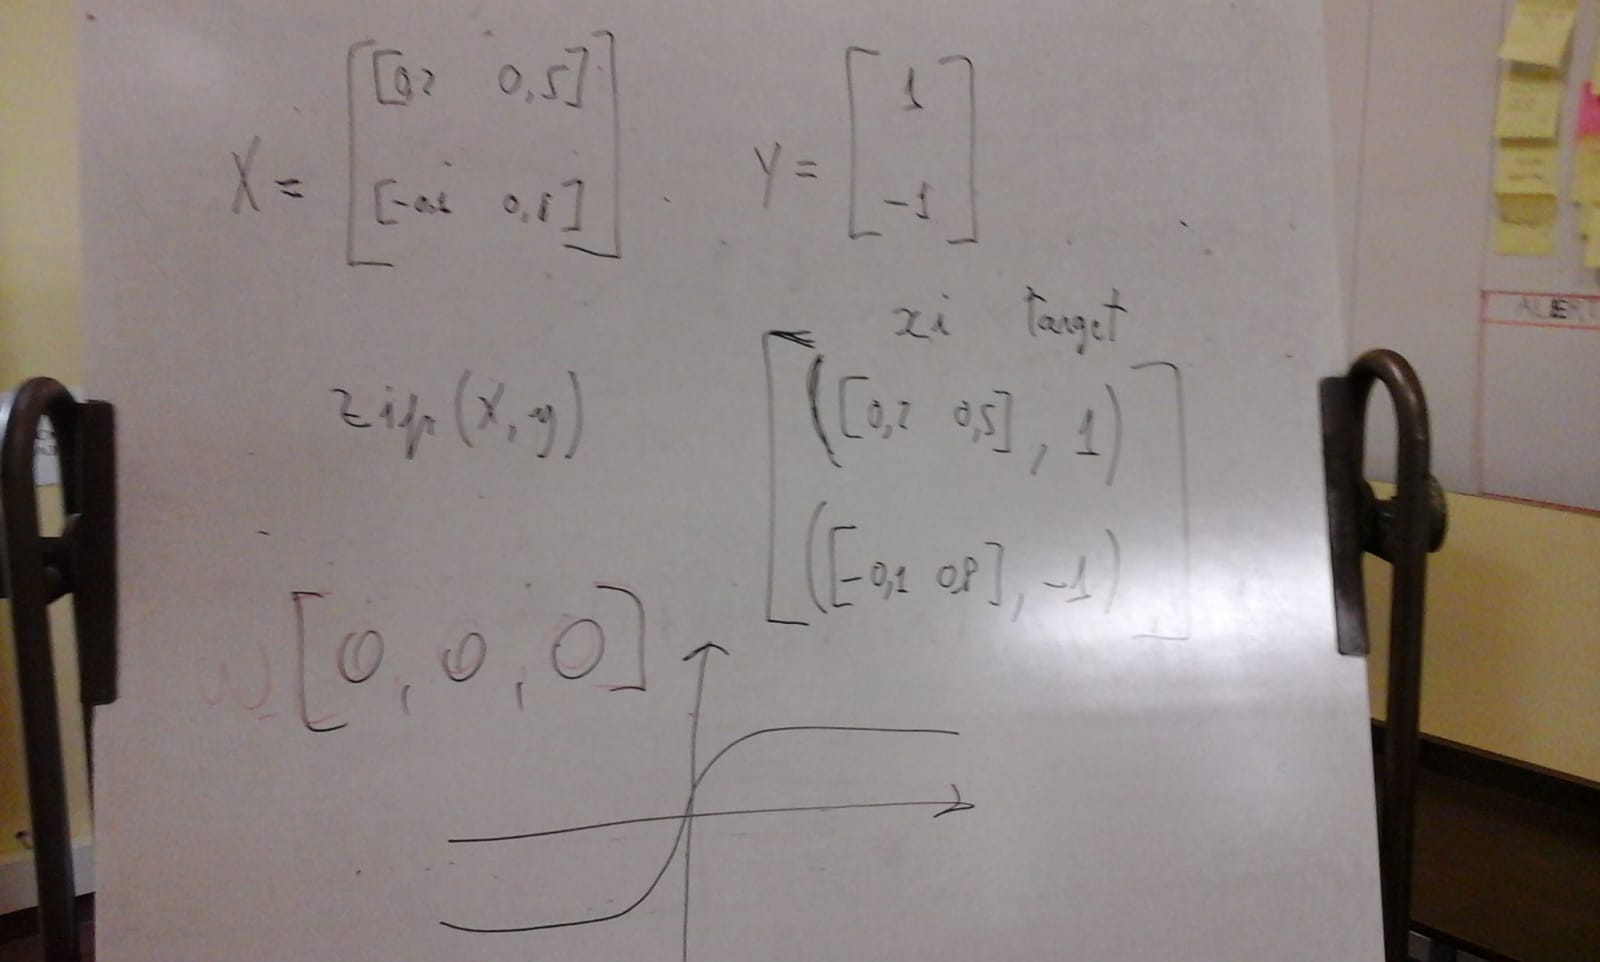 X = [[0,2 0,5]
[-0,1 0,8]]
Y = [1
-1]
xi target
zip(X, y)
[([0,2 0,5], 1)
([-0,1 0,8], -1)]
w [0, 0, 0]